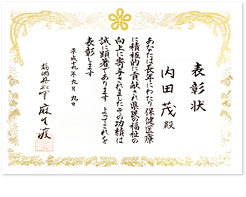 表彰状
内田 茂 殿
あなたは長年にわたり保健医療
に積極的に貢献され県民の福祉の
向上に寄与されましたその功績は
誠に顕著であります よってこれを
表彰します
平成十九年九月九日
福岡県知事 麻生渡